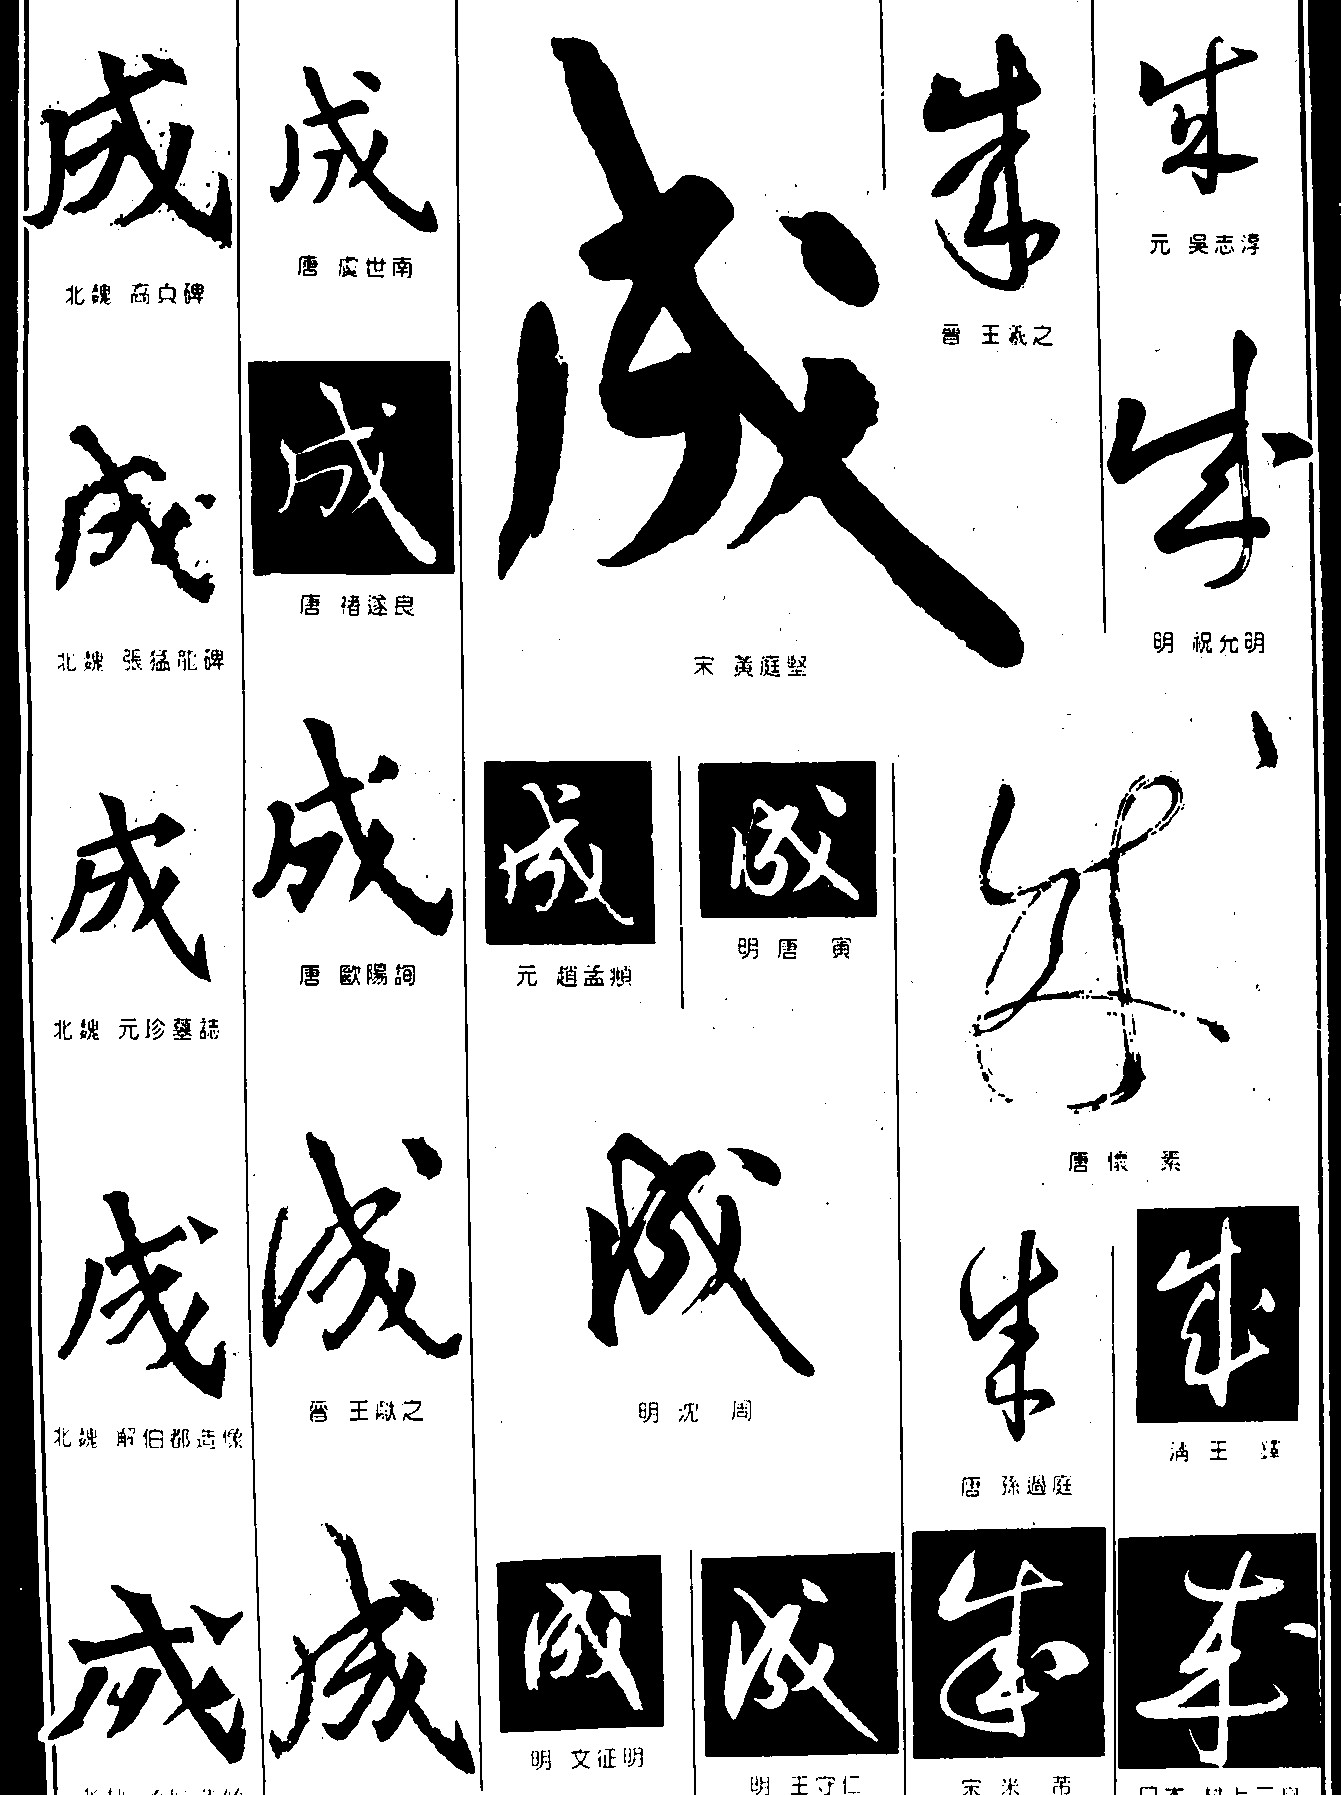 成
北魏 高貞碑
成
北魏 張猛龍碑
成
北魏 元珍墓誌
成
北魏 解伯都造像
成
成
唐 虞世南
成
唐 褚遂良
成
唐 歐陽詢
成
晉 王獻之
成
成
宋 黃庭堅
成
元 趙孟頫
成
明 唐 寅
成
明 沈 周
成
明 文征明
成
明 王守仁
成
晉 王羲之
成
元 吳志淳
成
明 祝允明
成
唐 懷 素
成
唐 孫過庭
成
清 王 鐸
成
宋 米 芾
成